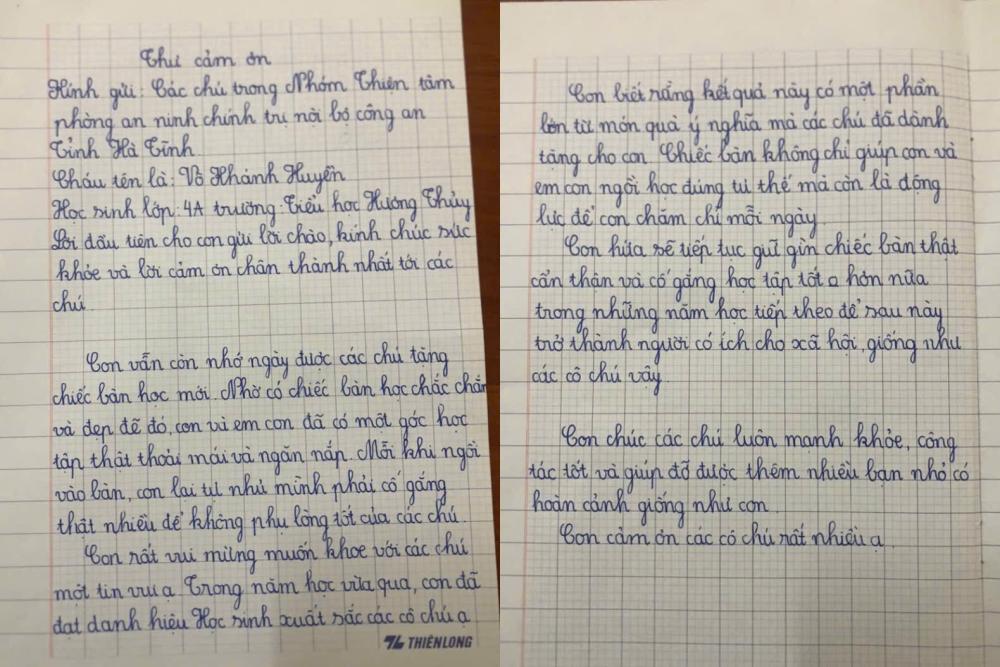 Thư cảm ơn
Kính gửi: Các chú trong Nhóm Thiện tâm
phòng an ninh chính trị nội bộ công an
Tỉnh Hà Tĩnh.
Cháu tên là: Võ Khánh Huyền
Học sinh lớp: 4A trường: Tiểu học Hương Thủy
Lời đầu tiên cho con gửi lời chào, kính chúc sức
khỏe và lời cảm ơn chân thành nhất tới các
chú.
Con vẫn còn nhớ ngày được các chú tặng
chiếc bàn học mới. Nhờ có chiếc bàn học chắc chắn
và đẹp đẽ đó, con và em con đã có một góc học
tập thật thoải mái và ngăn nắp. Mỗi khi ngồi
vào bàn, con lại tự nhủ mình phải cố gắng
thật nhiều để không phụ lòng tốt của các chú.
Con rất vui mừng muốn khoe với các chú
một tin vui ạ. Trong năm học vừa qua, con đã
đạt danh hiệu Học sinh xuất sắc các cô chú ạ.
THIÊN LONG
Con biết rằng kết quả này có một phần
lớn từ món quà ý nghĩa mà các chú đã dành
tặng cho con. Chiếc bàn không chỉ giúp con và
em con ngồi học đúng tư thế mà còn là động
lực để con chăm chỉ mỗi ngày
Con hứa sẽ tiếp tục giữ gìn chiếc bàn thật
cẩn thận và cố gắng học tập tốt a hơn nữa
trong những năm học tiếp theo để sau này
trở thành người có ích cho xã hội, giống như
các cô chú vậy
Con chúc các chú luôn mạnh khỏe, công
tác tốt và giúp đỡ được thêm nhiều bạn nhỏ có
hoàn cảnh giống như con.
Con cảm ơn các cô chú rất nhiều ạ.